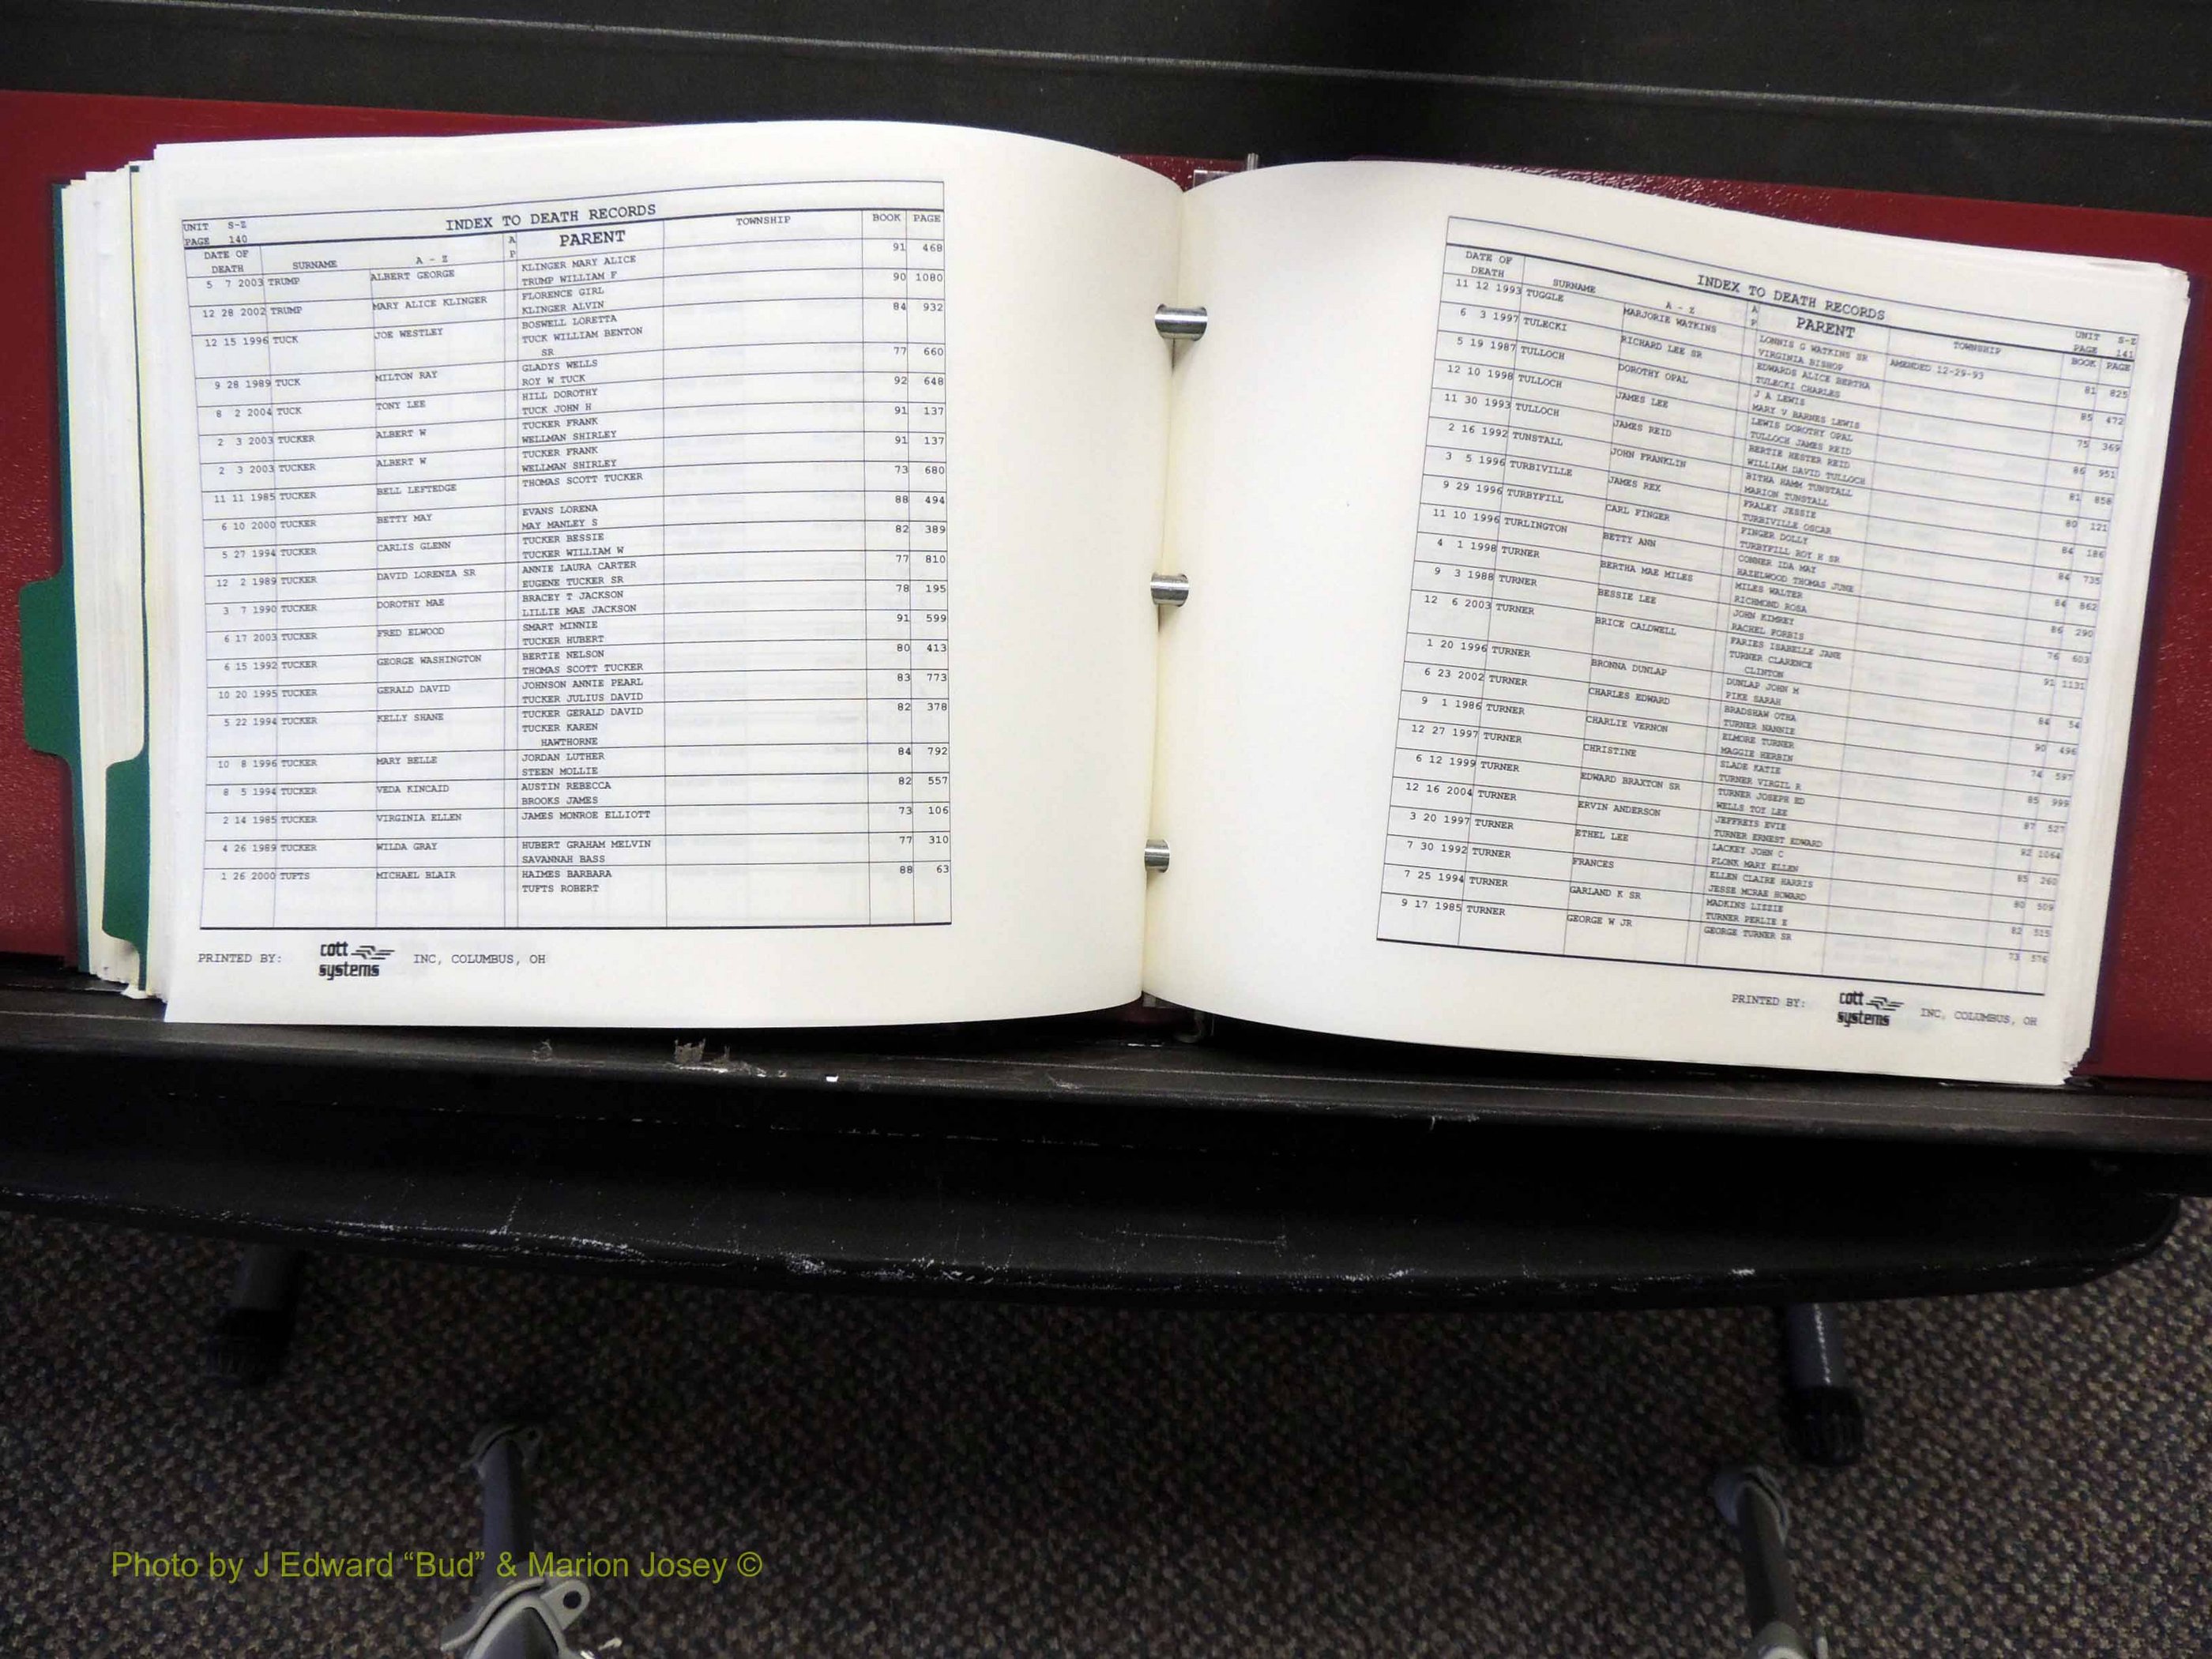 UNIT S-Z
PAGE 140
INDEX TO DEATH RECORDS
DATE OF DEATH SURNAME A - Z A P PARENT TOWNSHIP BOOK PAGE
5 7 2003 TRUMP ALBERT GEORGE KLINGER MARY ALICE 91 468
TRUMP WILLIAM F
12 28 2002 TRUMP MARY ALICE KLINGER FLORENCE GIRL 90 1080
KLINGER ALVIN
12 15 1996 TUCK JOE WESTLEY BOSWELL LORETTA 84 932
TUCK WILLIAM BENTON
SR
9 28 1989 TUCK MILTON RAY GLADYS WELLS 77 660
ROY W TUCK
8 2 2004 TUCK TONY LEE HILL DOROTHY 92 648
TUCK JOHN H
2 3 2003 TUCKER ALBERT W TUCKER FRANK 91 137
WELLMAN SHIRLEY
2 3 2003 TUCKER ALBERT W TUCKER FRANK 91 137
WELLMAN SHIRLEY
11 11 1985 TUCKER BELL LEFTEDGE THOMAS SCOTT TUCKER 73 680
6 10 2000 TUCKER BETTY MAY EVANS LORENA 88 494
MAY MANLEY S
5 27 1994 TUCKER CARLIS GLENN TUCKER BESSIE 82 389
TUCKER WILLIAM W
12 2 1989 TUCKER DAVID LORENZA SR ANNIE LAURA CARTER 77 810
EUGENE TUCKER SR
3 7 1990 TUCKER DOROTHY MAE BRACEY T JACKSON 78 195
LILLIE MAE JACKSON
6 17 2003 TUCKER FRED ELWOOD SMART MINNIE 91 599
TUCKER HUBERT
6 15 1992 TUCKER GEORGE WASHINGTON BERTIE NELSON 80 413
THOMAS SCOTT TUCKER
10 20 1995 TUCKER GERALD DAVID JOHNSON ANNIE PEARL 83 773
TUCKER JULIUS DAVID
5 22 1994 TUCKER KELLY SHANE TUCKER GERALD DAVID 82 378
TUCKER KAREN
HAWTHORNE
10 8 1996 TUCKER MARY BELLE JORDAN LUTHER 84 792
STEEN MOLLIE
8 5 1994 TUCKER VEDA KINCAID AUSTIN REBECCA 82 557
BROOKS JAMES
2 14 1985 TUCKER VIRGINIA ELLEN JAMES MONROE ELLIOTT 73 106
4 26 1989 TUCKER WILDA GRAY HUBERT GRAHAM MELVIN 77 310
SAVANNAH BASS
1 26 2000 TUFTS MICHAEL BLAIR HAIMES BARBARA 88 63
TUFTS ROBERT
PRINTED BY: cott systems INC, COLUMBUS, OH
INDEX TO DEATH RECORDS
UNIT S-Z
PAGE 141
DATE OF DEATH SURNAME A - Z A P PARENT TOWNSHIP BOOK PAGE
11 12 1993 TUGGLE MARJORIE WATKINS LONNIS G WATKINS SR AMENDED 12-29-93 81 825
VIRGINIA BISHOP
6 3 1997 TULECKI RICHARD LEE SR EDWARDS ALICE BERTHA 85 472
TULECKI CHARLES
5 19 1987 TULLOCH DOROTHY OPAL J A LEWIS 75 369
MARY V BARNES LEWIS
12 10 1998 TULLOCH JAMES LEE LEWIS DOROTHY OPAL 86 951
TULLOCH JAMES REID
11 30 1993 TULLOCH JAMES REID BERTIE HESTER REID 81 858
WILLIAM DAVID TULLOCH
2 16 1992 TUNSTALL JOHN FRANKLIN BITHA HAMM TUNSTALL 80 121
MARION TUNSTALL
3 5 1996 TURBIVILLE JAMES REX FRALEY JESSIE 84 186
TURBIVILLE OSCAR
9 29 1996 TURBYFILL CARL FINGER FINGER DOLLY 84 735
TURBYFILL ROY H SR
11 10 1996 TURLINGTON BETTY ANN CONNER IDA MAY 84 862
HAZELWOOD THOMAS JUNE
4 1 1998 TURNER BERTHA MAE MILES MILES WALTER 86 290
RICHMOND ROSA
9 3 1988 TURNER BESSIE LEE JOHN KIMREY 76 603
RACHEL FORBIS
12 6 2003 TURNER BRICE CALDWELL FARIES ISABELLE JANE 91 1131
TURNER CLARENCE
CLINTON
1 20 1996 TURNER BRONNA DUNLAP DUNLAP JOHN M 84 54
PIKE SARAH
6 23 2002 TURNER CHARLES EDWARD BRADSHAW OTHA 90 496
TURNER NANNIE
9 1 1986 TURNER CHARLIE VERNON ELMORE TURNER 74 597
MAGGIE HERBIN
12 27 1997 TURNER CHRISTINE SLADE KATIE 85 999
TURNER VIRGIL R
6 12 1999 TURNER EDWARD BRAXTON SR TURNER JOSEPH ED 87 527
WELLS TOY LEE
12 16 2004 TURNER ERVIN ANDERSON JEFFREYS EVIE 92 1064
TURNER ERNEST EDWARD
3 20 1997 TURNER ETHEL LEE LACKEY JOHN C 85 260
PLONK MARY ELLEN
7 30 1992 TURNER FRANCES ELLEN CLAIRE HARRIS 80 509
JESSE MCRAE HOWARD
7 25 1994 TURNER GARLAND K SR MADKINS LIZZIE 82 515
TURNER PERLIE E
9 17 1985 TURNER GEORGE W JR GEORGE TURNER SR 73 576
PRINTED BY: cott systems INC, COLUMBUS, OH
Photo by J Edward “Bud” & Marion Josey ©